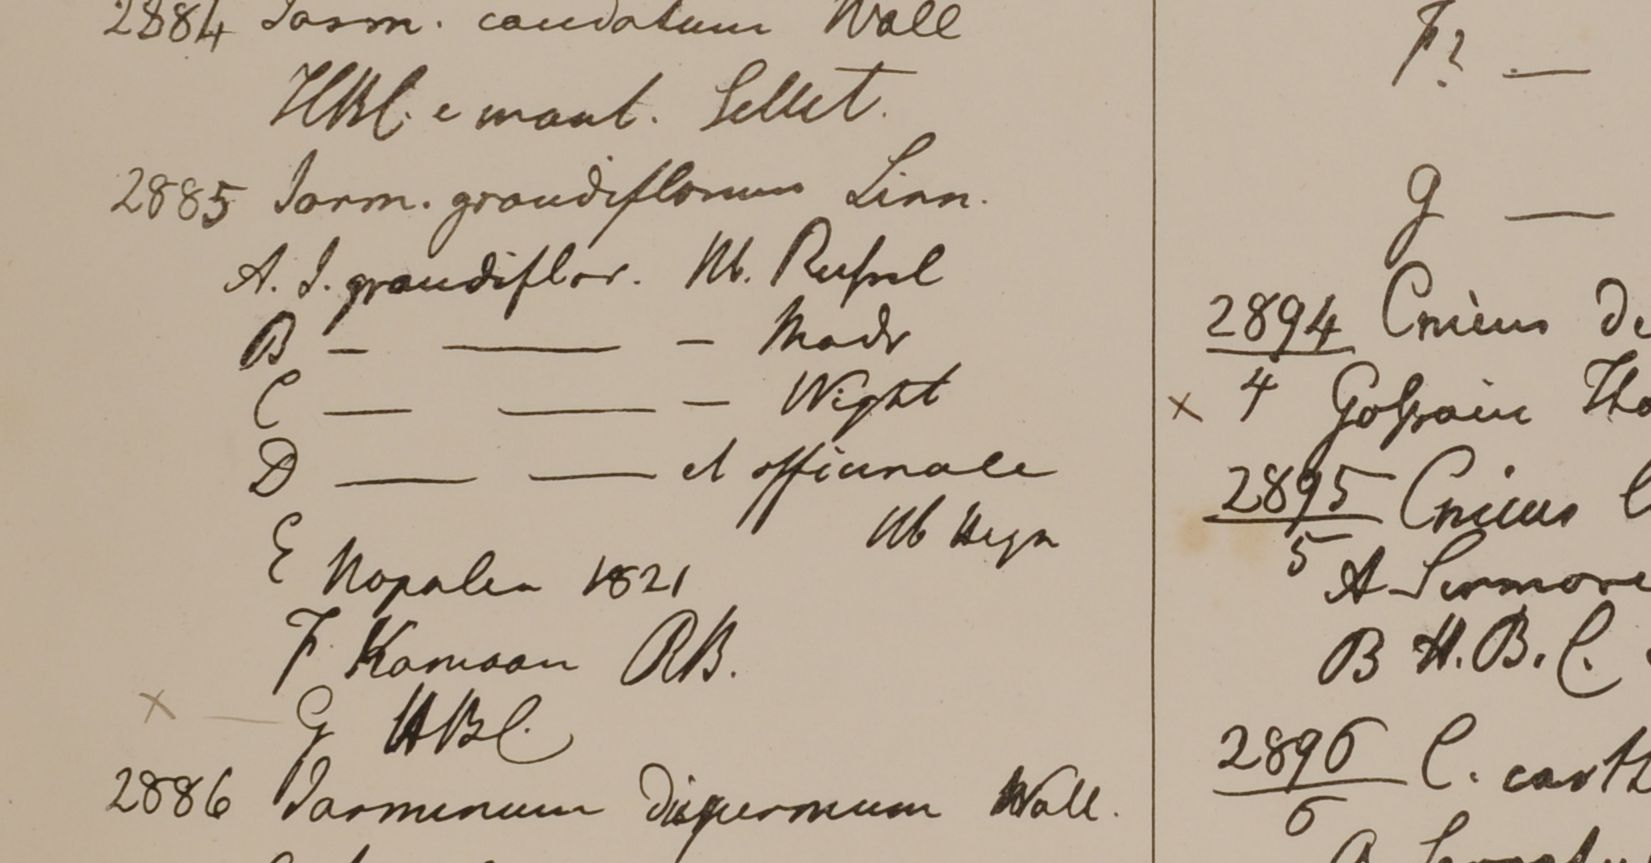 2884 Jasm. caudatum Wall
HBC. e mont. Sellet.
2885 Jasm. grandiflorum Linn.
A. J. grandiflor. Hb. Russel
B — —— — Madr
C — —— — Wight
D — —— et officinale
Hb Heyn
E Napalea 1821
F Kamaon RB.
x — G HBC.
2886 Jasminum dispermum Wall.
F? —
G —
2894 Cnicus de
x 4 Gossain Tha
2895 Cnicus
5
A Sirmore
B H.B.C.
2896 C. carth
6